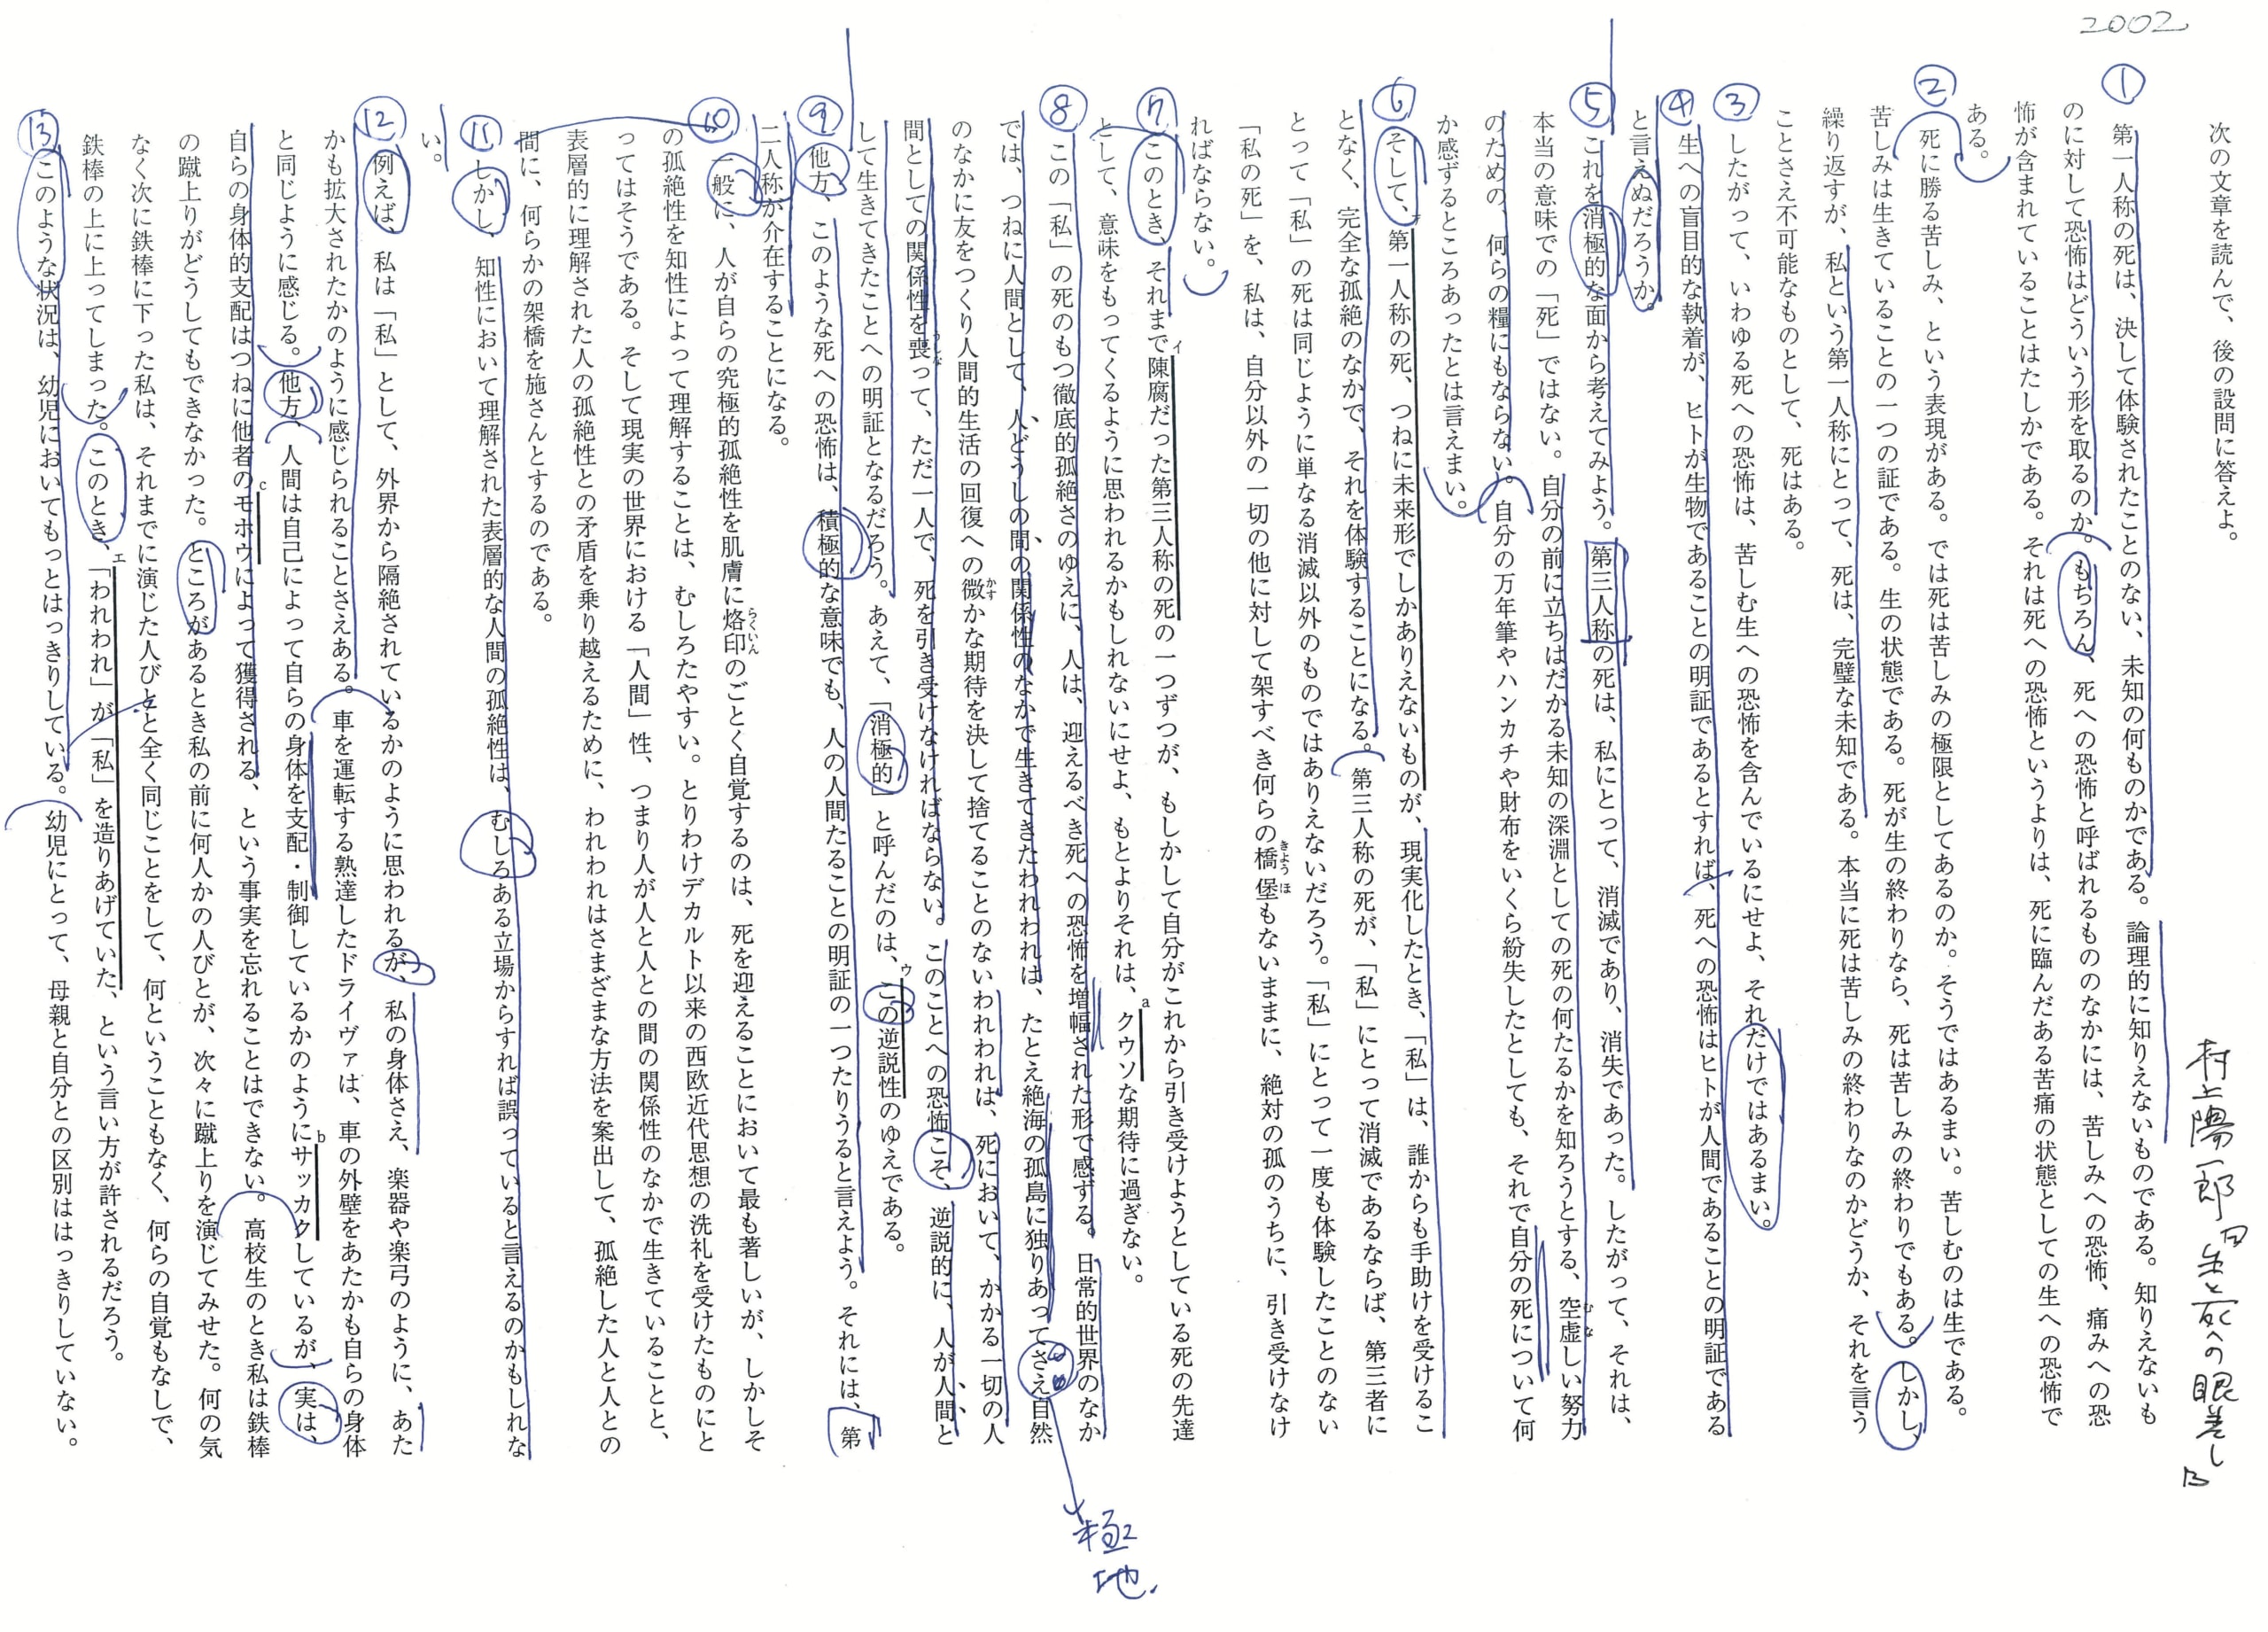 2002
村上陽一郎『生と死への眼差し』
次の文章を読んで、後の設問に答えよ。
①
第一人称の死は、決して体験されたことのない、未知の何ものかである。論理的に知りえないものである。知りえないも
のに対して恐怖はどういう形を取るのか。もちろん、死への恐怖と呼ばれるもののなかには、苦しみへの恐怖、痛みへの恐
怖が含まれていることはたしかである。それは死への恐怖というよりは、死に臨んだある苦痛の状態としての生への恐怖で
ある。
②
死に勝る苦しみ、という表現がある。では死は苦しみの極限としてあるのか。そうではあるまい。苦しむのは生である。
苦しみは生きていることの一つの証である。生の状態である。死が生の終わりなら、死は苦しみの終わりでもある。しかし、
繰り返すが、私という第一人称にとって、死は、完璧な未知である。本当に死は苦しみの終わりなのかどうか、それを言う
ことさえ不可能なものとして、死はある。
③
したがって、いわゆる死への恐怖は、苦しむ生への恐怖を含んでいるにせよ、それだけではあるまい。
④
生への盲目的な執着が、ヒトが生物であることの明証であるとすれば、死への恐怖はヒトが人間であることの明証である
と言えぬだろうか。
⑤
これを消極的な面から考えてみよう。第三人称の死は、私にとって、消滅であり、消失であった。したがって、それは、
本当の意味での「死」ではない。自分の前に立ちはだかる未知の深淵としての死の何たるかを知ろうとする、空虚しい努力
むな
のための、何らの糧にもならない。自分の万年筆やハンカチや財布をいくら紛失したとしても、それで自分の死について何
か感ずるところあったとは言えまい。
⑥
ア
そして、第一人称の死、つねに未来形でしかありえないものが、現実化したとき、「私」は、誰からも手助けを受けるこ
となく、完全な孤絶のなかで、それを体験することになる。第三人称の死が、「私」にとって消滅であるならば、第三者に
とって「私」の死は同じように単なる消滅以外のものではありえないだろう。「私」にとって一度も体験したことのない
「私の死」を、私は、自分以外の一切の他に対して架すべき何らの橋堡もないままに、絶対の孤のうちに、引き受けなけ
きょうほ
ればならない。
⑦
イ
このとき、それまで陳腐だった第三人称の死の一つずつが、もしかして自分がこれから引き受けようとしている死の先達
として、意味をもってくるように思われるかもしれないにせよ、もとよりそれは、クウソな期待に過ぎない。
a
⑧
この「私」の死のもつ徹底的孤絶さのゆえに、人は、迎えるべき死への恐怖を増幅された形で感ずる。日常的世界のなか
では、つねに人間として、人どうしの間の関係性のなかで生きてきたわれわれは、たとえ絶海の孤島に独りあってさえ自然
極地
のなかに友をつくり人間的生活の回復への微かな期待を決して捨てることのないわれわれは、死において、かかる一切の人
かす
間としての関係性を喪って、ただ一人で、死を引き受けなければならない。このことへの恐怖こそ、逆説的に、人が人間と
うしな
して生きてきたことへの明証となるだろう。あえて、「消極的」と呼んだのは、この逆説性のゆえである。
ウ
⑨
他方、このような死への恐怖は、積極的な意味でも、人の人間たることの明証の一つたりうると言えよう。それには、第
二人称が介在することになる。
⑩
一般に、人が自らの究極的孤絶性を肌膚に烙印のごとく自覚するのは、死を迎えることにおいて最も著しいが、しかしそ
らくいん
の孤絶性を知性によって理解することは、むしろたやすい。とりわけデカルト以来の西欧近代思想の洗礼を受けたものにと
ってはそうである。そして現実の世界における「人間」性、つまり人が人と人との間の関係性のなかで生きていることと、
表層的に理解された人の孤絶性との矛盾を乗り越えるために、われわれはさまざまな方法を案出して、孤絶した人と人との
間に、何らかの架橋を施さんとするのである。
⑪
しかし、知性において理解された表層的な人間の孤絶性は、むしろある立場からすれば誤っていると言えるのかもしれな
い。
⑫
例えば、私は「私」として、外界から隔絶されているかのように思われるが、私の身体さえ、楽器や楽弓のように、あた
かも拡大されたかのように感じられることさえある。車を運転する熟達したドライヴァは、車の外壁をあたかも自らの身体
と同じように感じる。他方、人間は自己によって自らの身体を支配・制御しているかのようにサッカクしているが、実は、
b
自らの身体的支配はつねに他者のモホウによって獲得される、という事実を忘れることはできない。高校生のとき私は鉄棒
c
の蹴上りがどうしてもできなかった。ところがあるとき私の前に何人かの人びとが、次々に蹴上りを演じてみせた。何の気
なく次に鉄棒に下った私は、それまでに演じた人びとと全く同じことをして、何ということもなく、何らの自覚もなしで、
鉄棒の上に上ってしまった。このとき、「われわれ」が「私」を造りあげていた、という言い方が許されるだろう。
エ
⑬
このような状況は、幼児においてもっとはっきりしている。幼児にとって、母親と自分との区別ははっきりしていない。